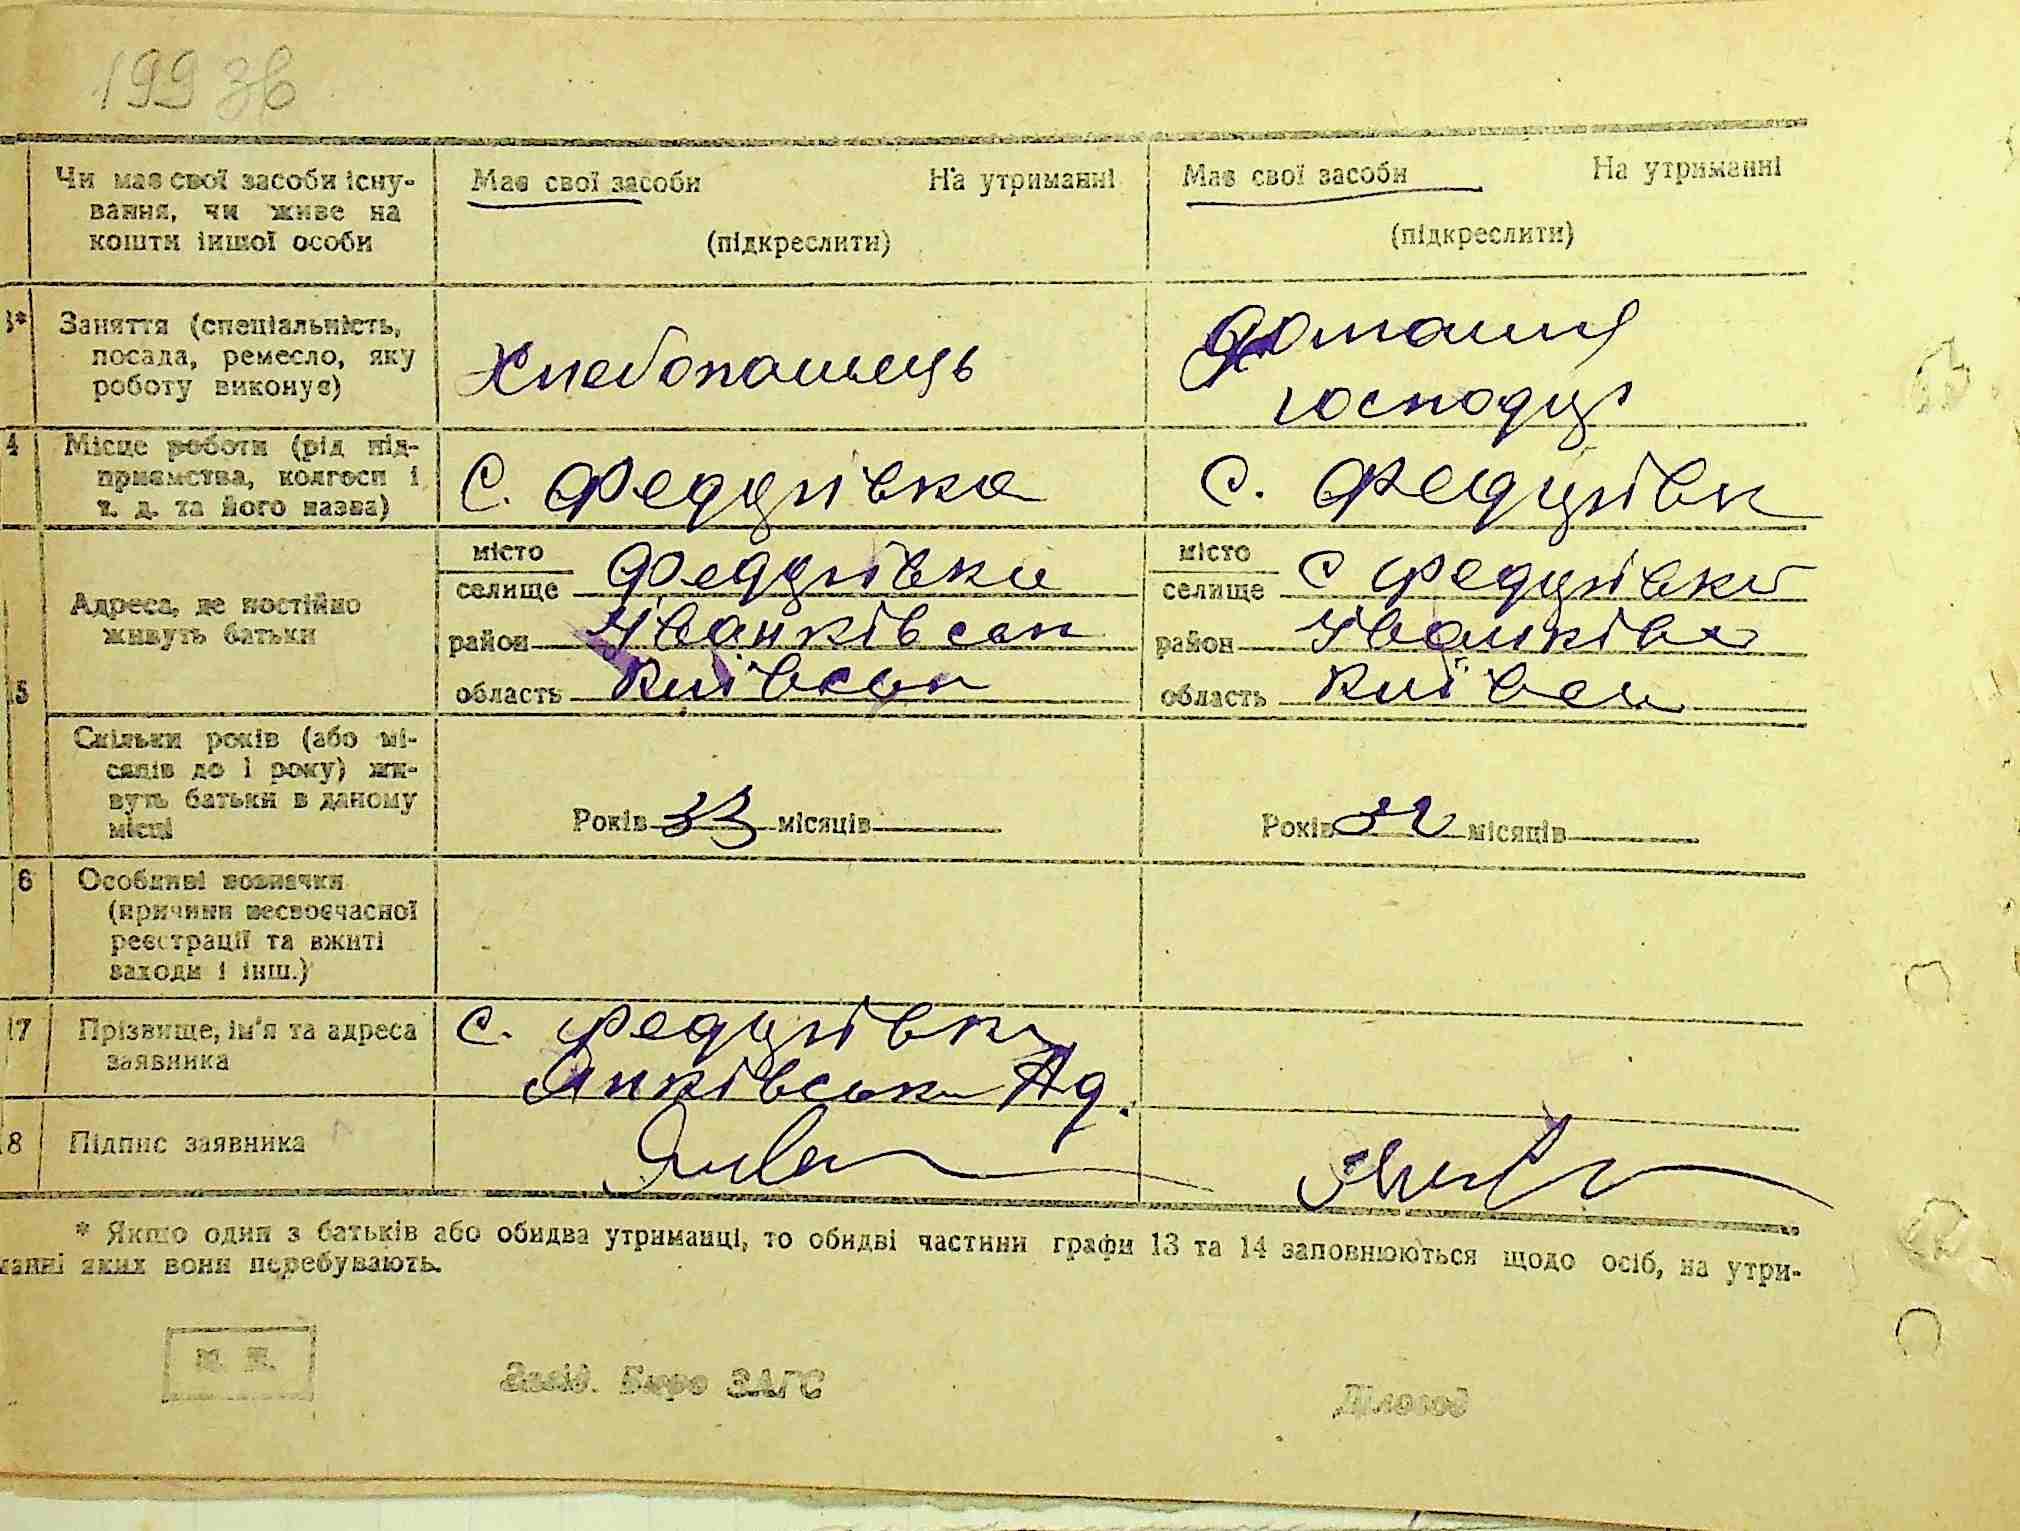 199 зв
Чи має свої засоби існу-
вання, чи живе на
кошти іншої особи
Має свої засоби На утриманні
(підкреслити)
Має свої засоби На утриманні
(підкреслити)
3* Заняття (спеціальність,
посада, ремесло, яку
роботу виконує)
Хлебопашець
Домашня
господ
4 Місце роботи (рід під-
приємства, колгосп і
т. д. та його назва)
С. Федорівка
С. Федорівк
15
Адреса, де постійно
живуть батьки
місто
селище Федорівка
район Іванківськ
область Київськ
місто
селище С Федорівка
район Іванків
область Київськ
Скільки років (або мі-
сяців до 1 року) жи-
вуть батьки в даному
місці
Років 33 місяців
Років 32 місяців
6 Особливі позначки
(причини несвоєчасної
реєстрації та вжиті
заходи і інш.)
17 Прізвище, ім'я та адреса
заявника
С. Федорівка
Янківськ Ад.
18 Підпис заявника
* Якщо один з батьків або обидва утриманці, то обидві частини графи 13 та 14 заповнюються щодо осіб, на утри-
манні яких вони перебувають.
М. П.
Завід. Бюро ЗАГС
Діловод